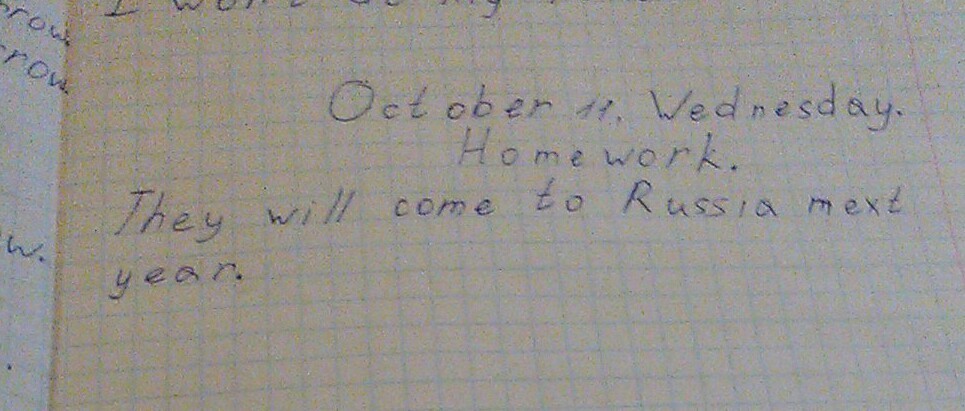 rrow
I won't do my
rrow
October 11. Wednesday.
Homework.
They will come to Russia mext
w.
year.